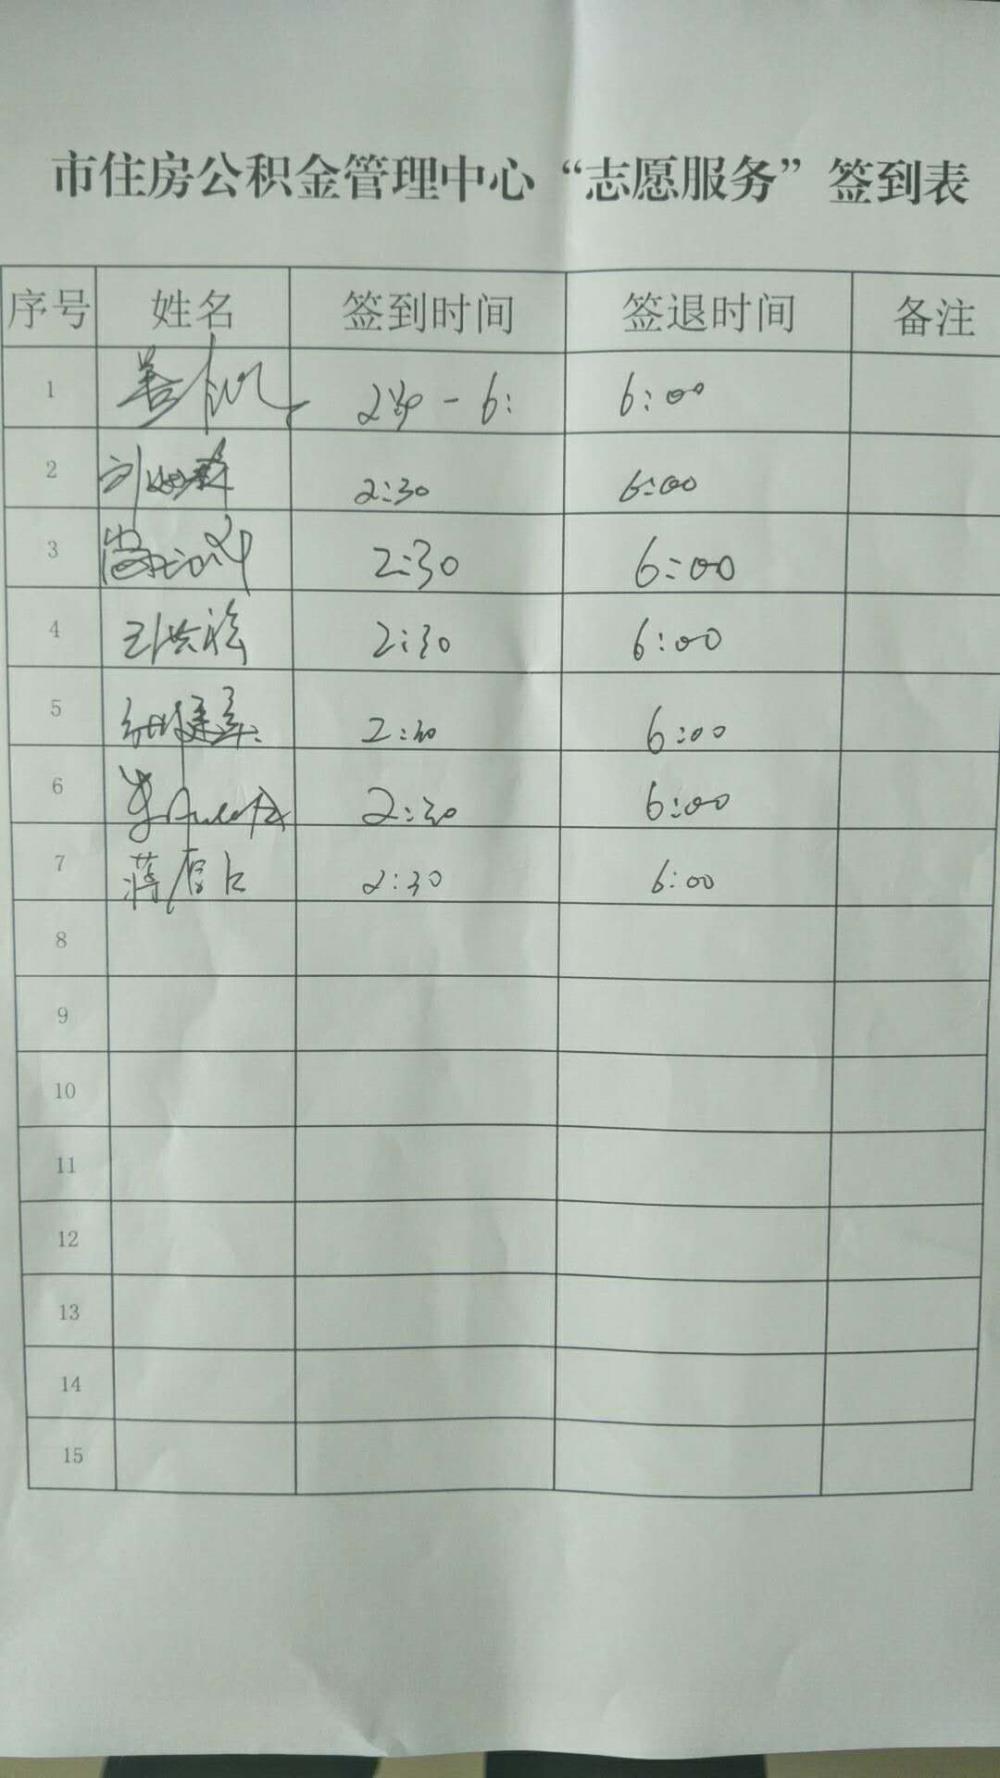 市住房公积金管理中心“志愿服务”签到表
序号 姓名 签到时间 签退时间 备注
1 6: 6:00
2 2:30 6:00
3 2:30 6:00
4 2:30 6:00
5 2:30 6:00
6 2:30 6:00
7 蒋 2:30 6:00
8
9
10
11
12
13
14
15